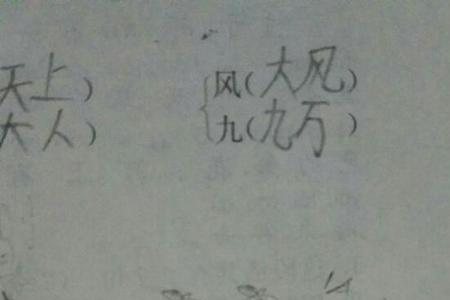 天上） 风（大风）
大人） 九（九万）